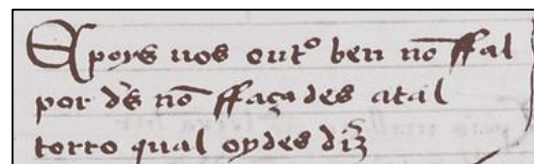 E poys uos outº ben nō ffal
por d̄s nō ffaçades atal
torto qual oydes diz̄